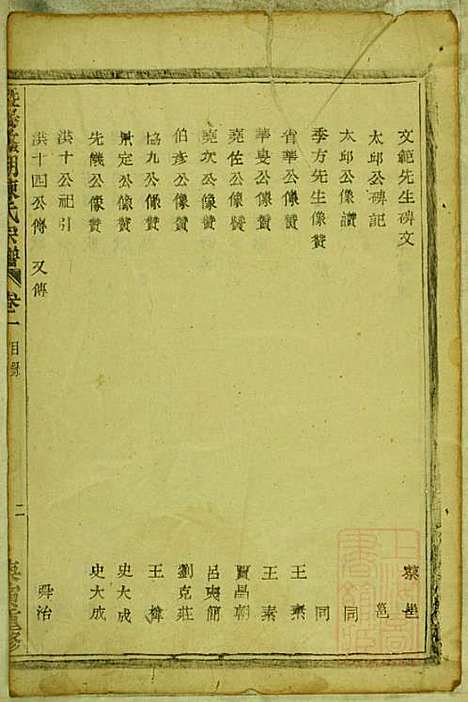 文範先生碑文 蔡邕
太邱公碑記 邕
太邱公像讚 同
季方先生像贊 同
省華公像贊 王素
華叟公像贊 王素
堯佐公像贊 賈昌朝
堯次公像贊 呂夷簡
伯彥公像贊 劉克莊
協九公像贊 王 禕
定公像贊 史大成
先幾公像贊 史大成
洪十公祀引
洪十四公傳 又傳 舜治
湖陳氏宗譜 卷一 目錄 二 重修